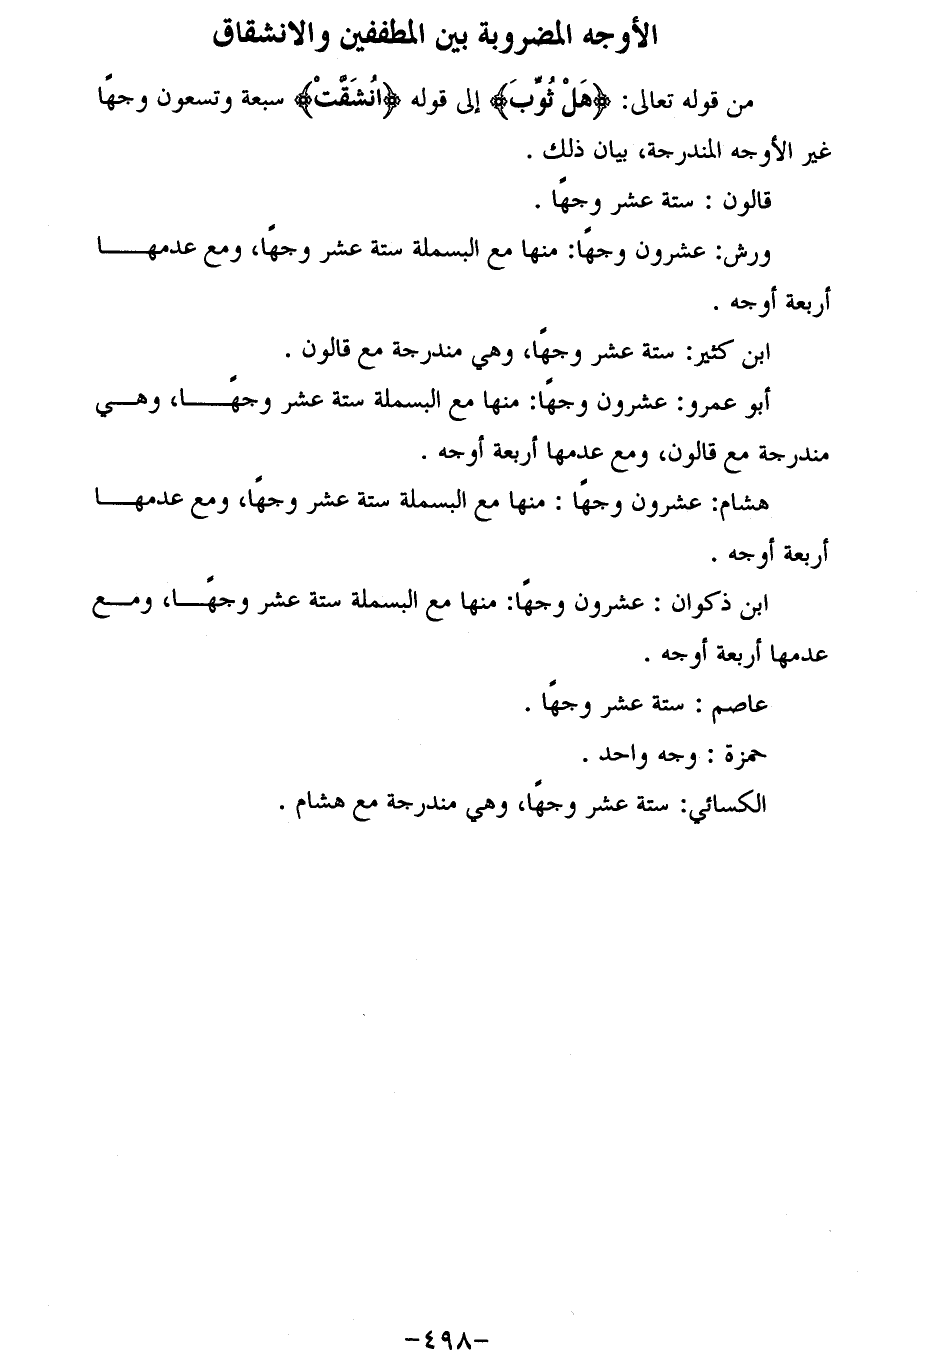 الأوجه المضروبة بين المطففين والانشقاق
من قوله تعالى: ﴿هَلْ ثُوِّبَ﴾ إلى قوله ﴿انُشَقَّتْ﴾ سبعة وتسعون وجهًا
غير الأوجه المندرجة، بيان ذلك .
قالون : ستة عشر وجهًا .
ورش: عشرون وجهًا: منها مع البسملة ستة عشر وجهًا، ومع عدمهـــــا
أربعة أوجه .
ابن كثير: ستة عشر وجهًا، وهي مندرجة مع قالون .
أبو عمرو: عشرون وجهًا: منها مع البسملة ستة عشر وجهًـــــا، وهـــي
مندرجة مع قالون، ومع عدمها أربعة أوجه .
هشام: عشرون وجهًا : منها مع البسملة ستة عشر وجهًا، ومع عدمهـــــا
أربعة أوجه .
ابن ذكوان : عشرون وجهًا: منها مع البسملة ستة عشر وجهًـــا، ومـــع
عدمها أربعة أوجه .
عاصم : ستة عشر وجهًا .
حمزة : وجه واحد .
الكسائي: ستة عشر وجهًا، وهي مندرجة مع هشام .
-٤٩٨-